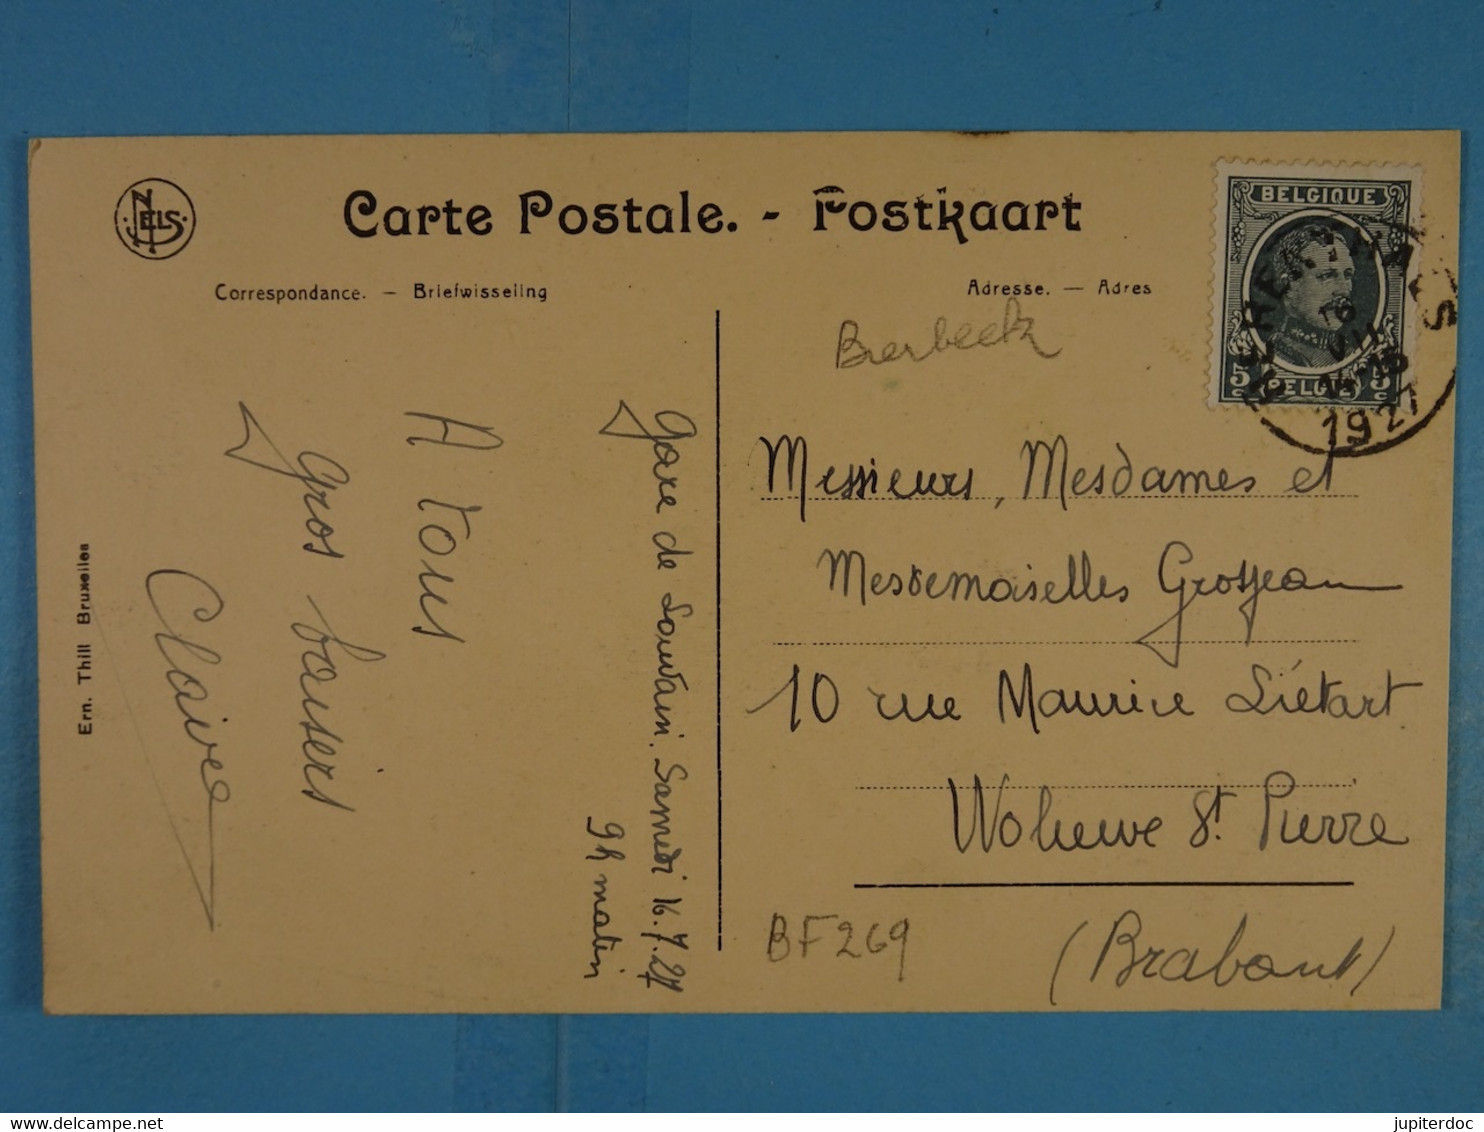 NELS
Carte Postale. - Postkaart
Correspondance. — Briefwisseling
Adresse. — Adres
BELGIQUE
5c BELGIË 5c
16
VII
14-15
1927
Bierbeek
Gare de Louvain. Samedi 16.7.27
9h matin
A tous
gros baisers
Claire
Messieurs, Mesdames et
Mesdemoiselles Grosjean
10 rue Maurice Liétart
Woluwe St. Pierre
(Brabant)
BF269
Ern. Thill Bruxelles
delcampe.net
jupiterdoc